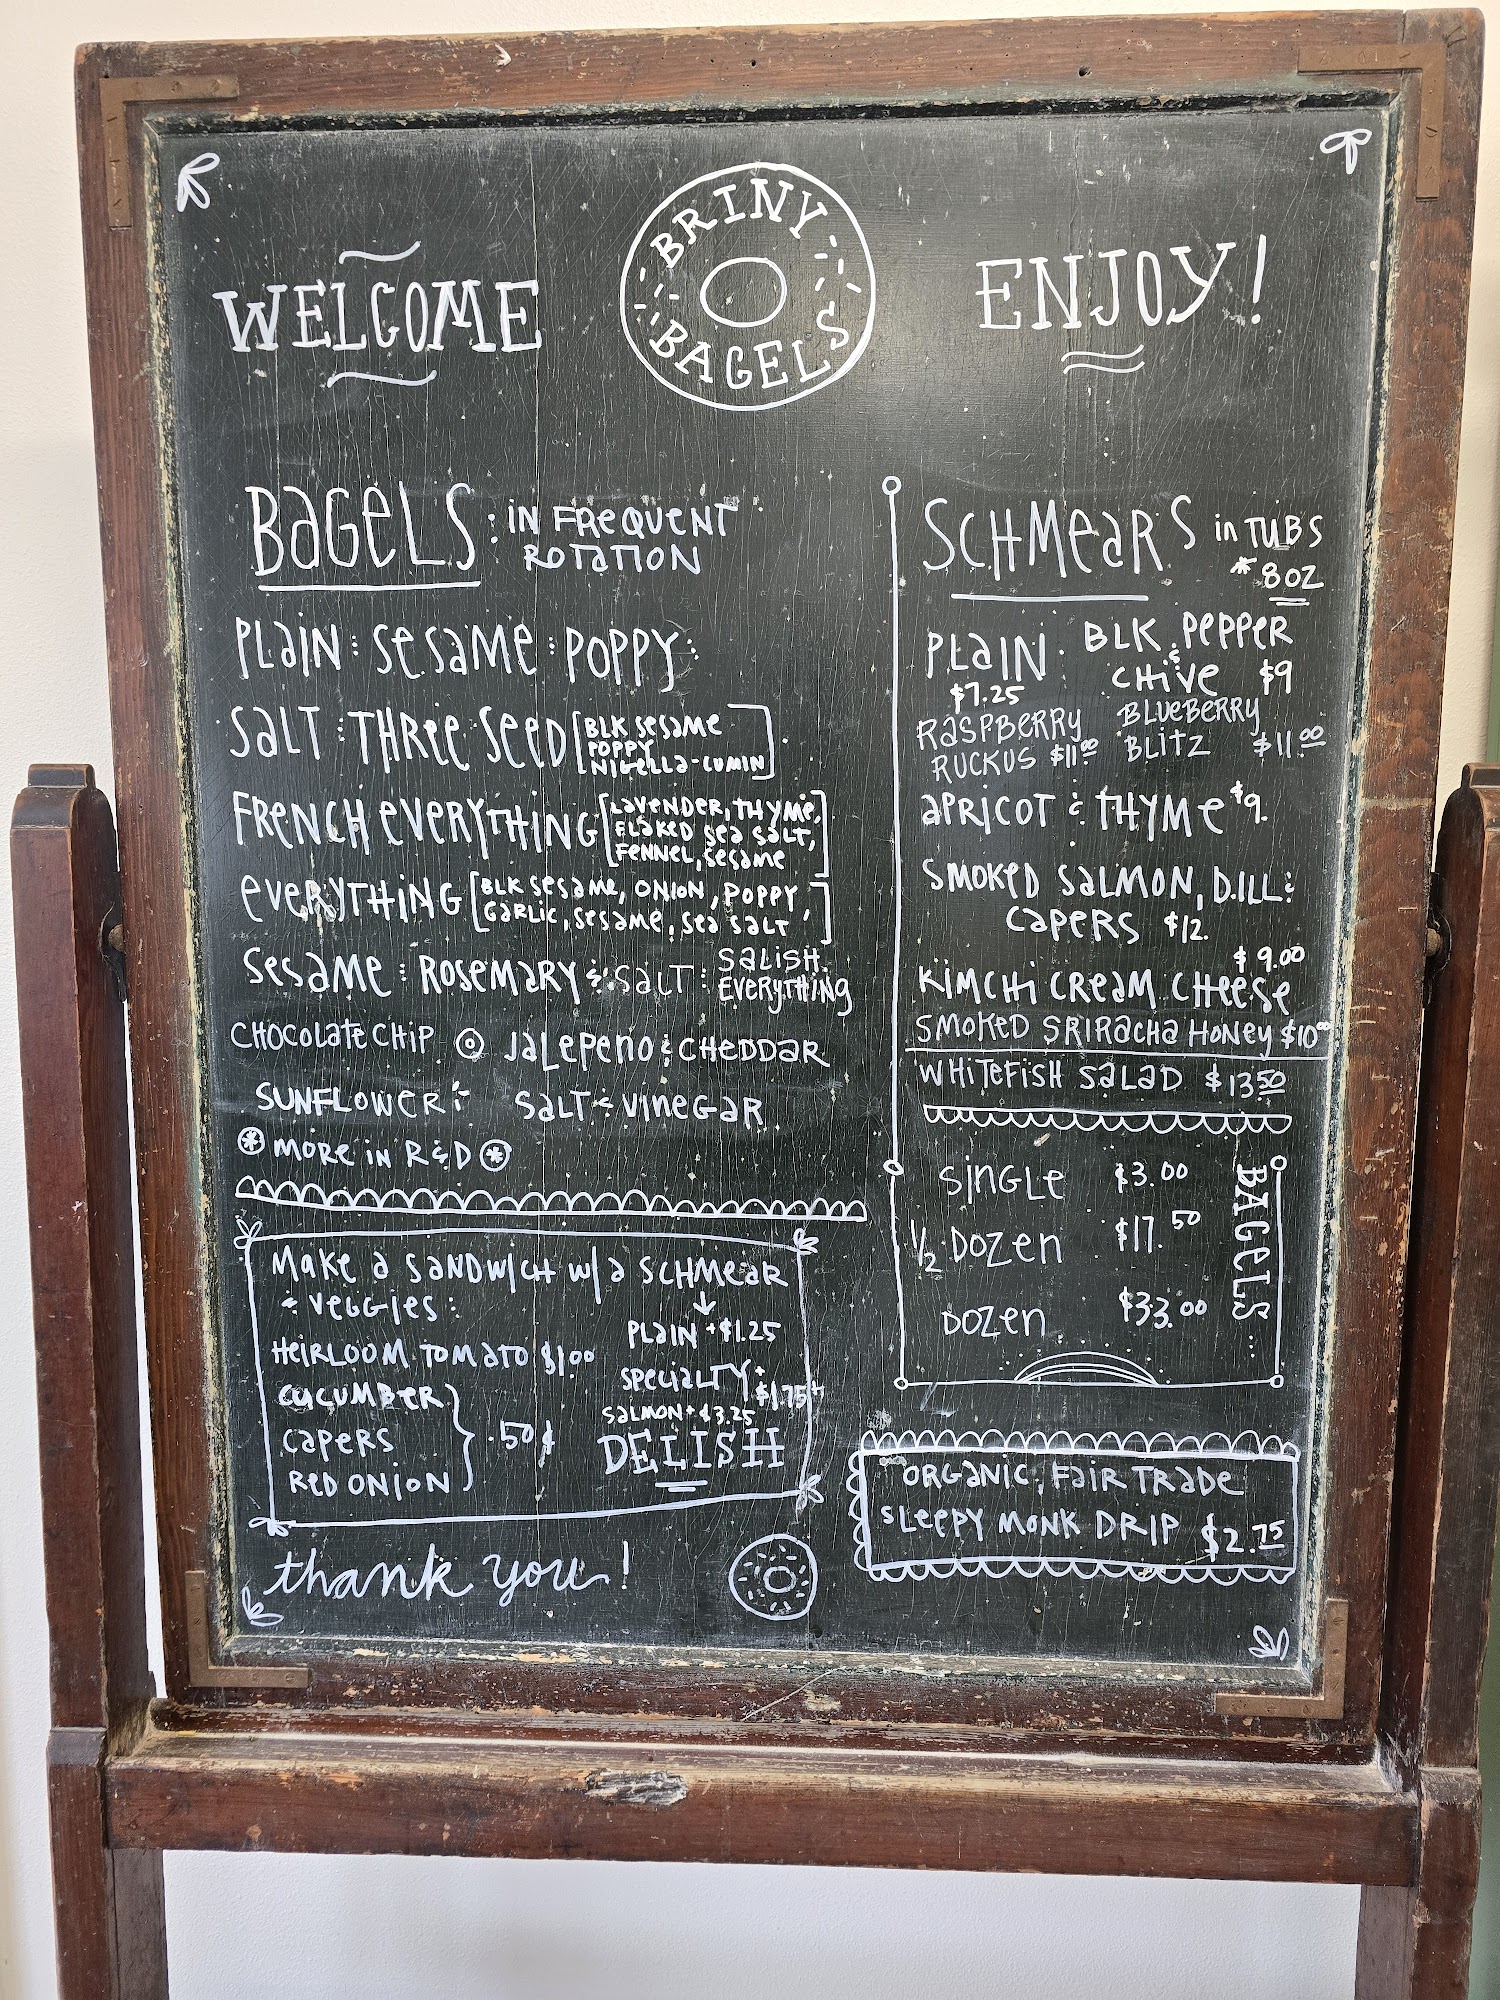 WELCOME
BRINY
BAGELS
ENJOY!
BAGELS: IN FREQUENT
ROTATION
PLAIN : SESAME : POPPY :
SALT : THREE SEED [BLK SESAME
POPPY
NIGELLA-CUMIN]
FRENCH EVERYTHING [LAVENDER, THYME,
FLAKED SEA SALT,
FENNEL, SESAME]
EVERYTHING [BLK SESAME, ONION, POPPY,
GARLIC, SESAME, SEA SALT]
SESAME : ROSEMARY & SALT : SALISH
EVERYTHING
CHOCOLATE CHIP JALEPENO & CHEDDAR
SUNFLOWER SALT & VINEGAR
* MORE IN R&D *
MAKE A SANDWICH W/A SCHMEAR
& VEGGIES:
PLAIN + $1.25
HEIRLOOM TOMATO $1.00
SPECIALTY +
$1.75
CUCUMBER
SALMON + $3.25
CAPERS
.50¢
DELISH
RED ONION
thank you!
SCHMEARS in TUBS
* 8OZ
PLAIN
$7.25
BLK PEPPER
& CHIVE $9
RASPBERRY
RUCKUS $11.00
BLUEBERRY
BLITZ $11.00
APRICOT & THYME $9.
SMOKED SALMON, DILL &
CAPERS $12.
$9.00
KIMCHI CREAM CHEESE
SMOKED SRIRACHA HONEY $10.00
WHITEFISH SALAD $13.50
BAGELS
SINGLE $3.00
1/2 DOZEN $17.50
DOZEN $33.00
ORGANIC, FAIR TRADE
SLEEPY MONK DRIP $2.75